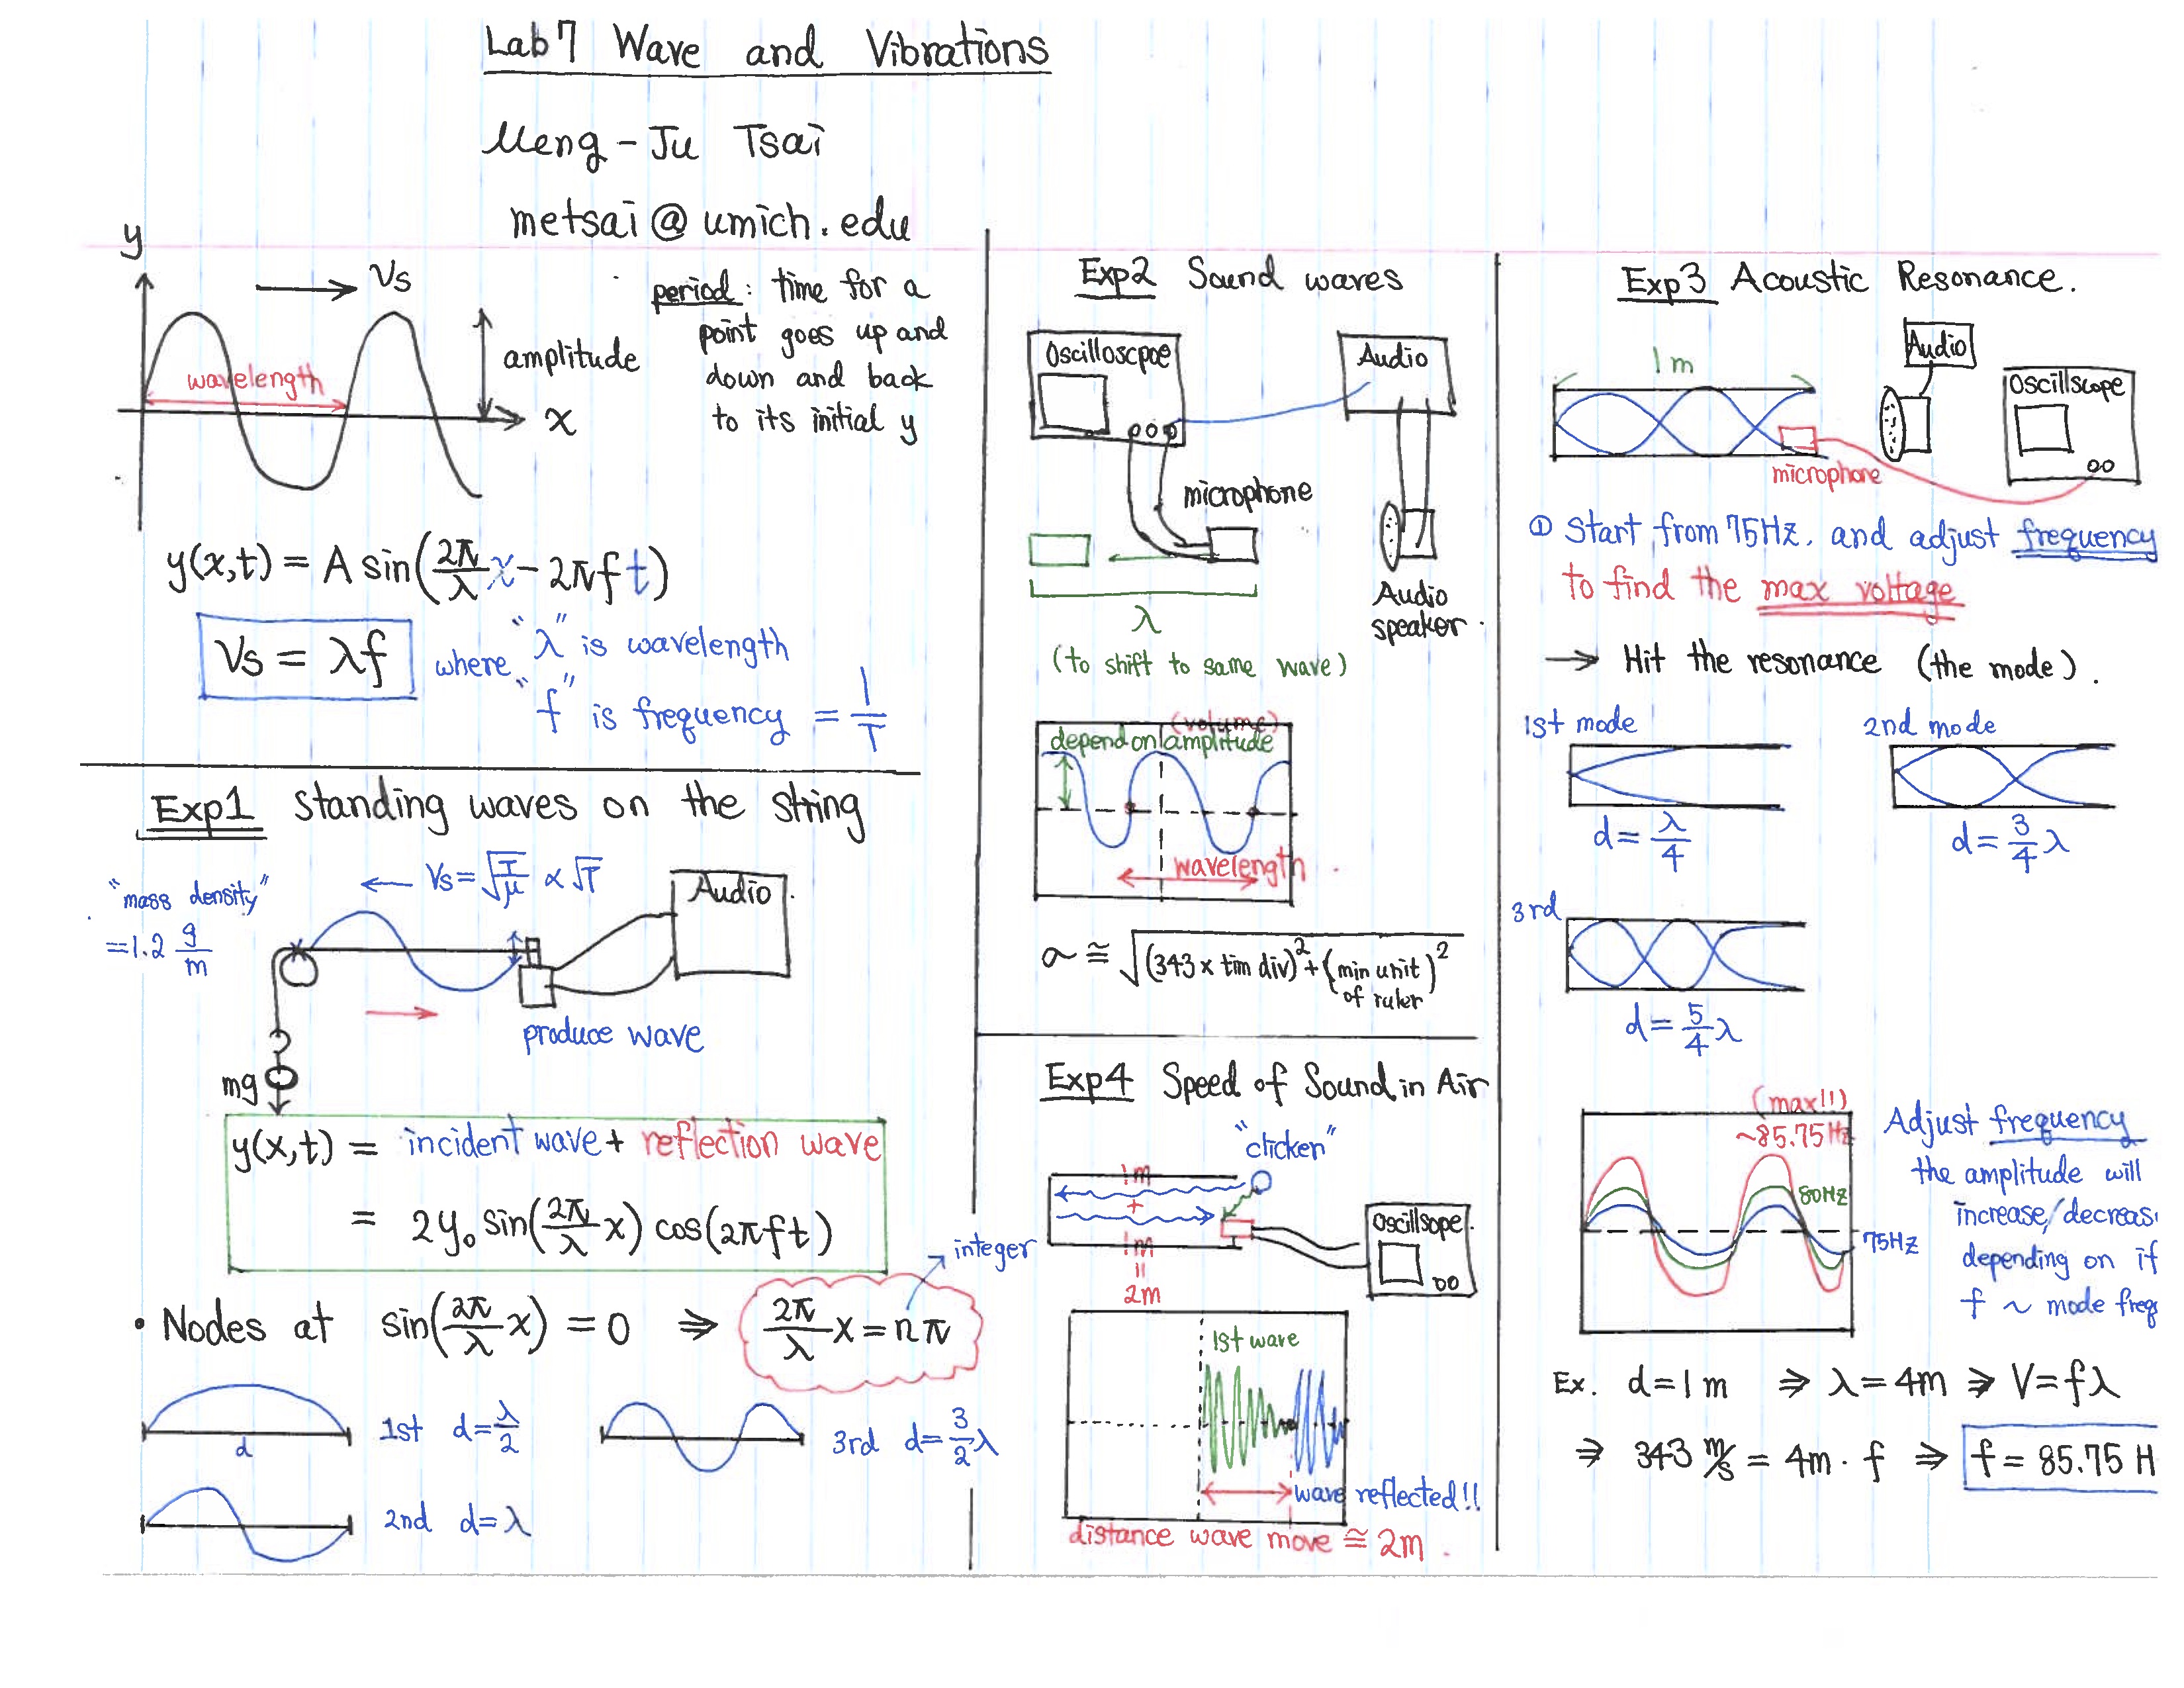 Lab7 Wave and Vibrations
Meng-Ju Tsai
metsai@umich.edu
y
Vs
amplitude
wavelength
x
period: time for a
point goes up and
down and back
to its initial y
y(x,t) = A sin(2π/λ x - 2πft)
Vs = λf
where "λ" is wavelength
"f" is frequency = 1/T
Exp1 Standing waves on the string
"mass density"
=1.2 g/m
Vs = √(T/μ) ∝ √T
Audio
produce wave
mg
y(x,t) = incident wave + reflection wave
= 2y₀ sin(2π/λ x) cos(2πft)
integer
• Nodes at sin(2π/λ x) = 0 ⇒ 2π/λ x = nπ
d
1st d=λ/2
3rd d=3/2 λ
2nd d=λ
Exp2 Sound waves
Oscilloscpoe
Audio
microphone
Audio
speaker
λ
(to shift to same wave)
(volume)
depend on amplitude
wavelength
σ ≅ √((343 x tim div)² + (min unit of ruler)²)
Exp4 Speed of Sound in Air
"clicker"
1m
+
1m
=
2m
Oscillsope
1st wave
wave reflected!!
distance wave move ≅ 2m.
Exp3 Acoustic Resonance.
1m
Audio
Oscillscope
microphone
① Start from 75Hz, and adjust frequency
to find the max voltage
→ Hit the resonance (the mode).
1st mode
2nd mode
d=λ/4
d=3/4 λ
3rd
d=5/4 λ
(max!!)
~85.75Hz
80Hz
75Hz
Adjust frequency
the amplitude will
increase/decreas
depending on if
f ~ mode freq
Ex. d=1m ⇒ λ=4m ⇒ V=fλ
⇒ 343 m/s = 4m · f ⇒ f = 85.75 H